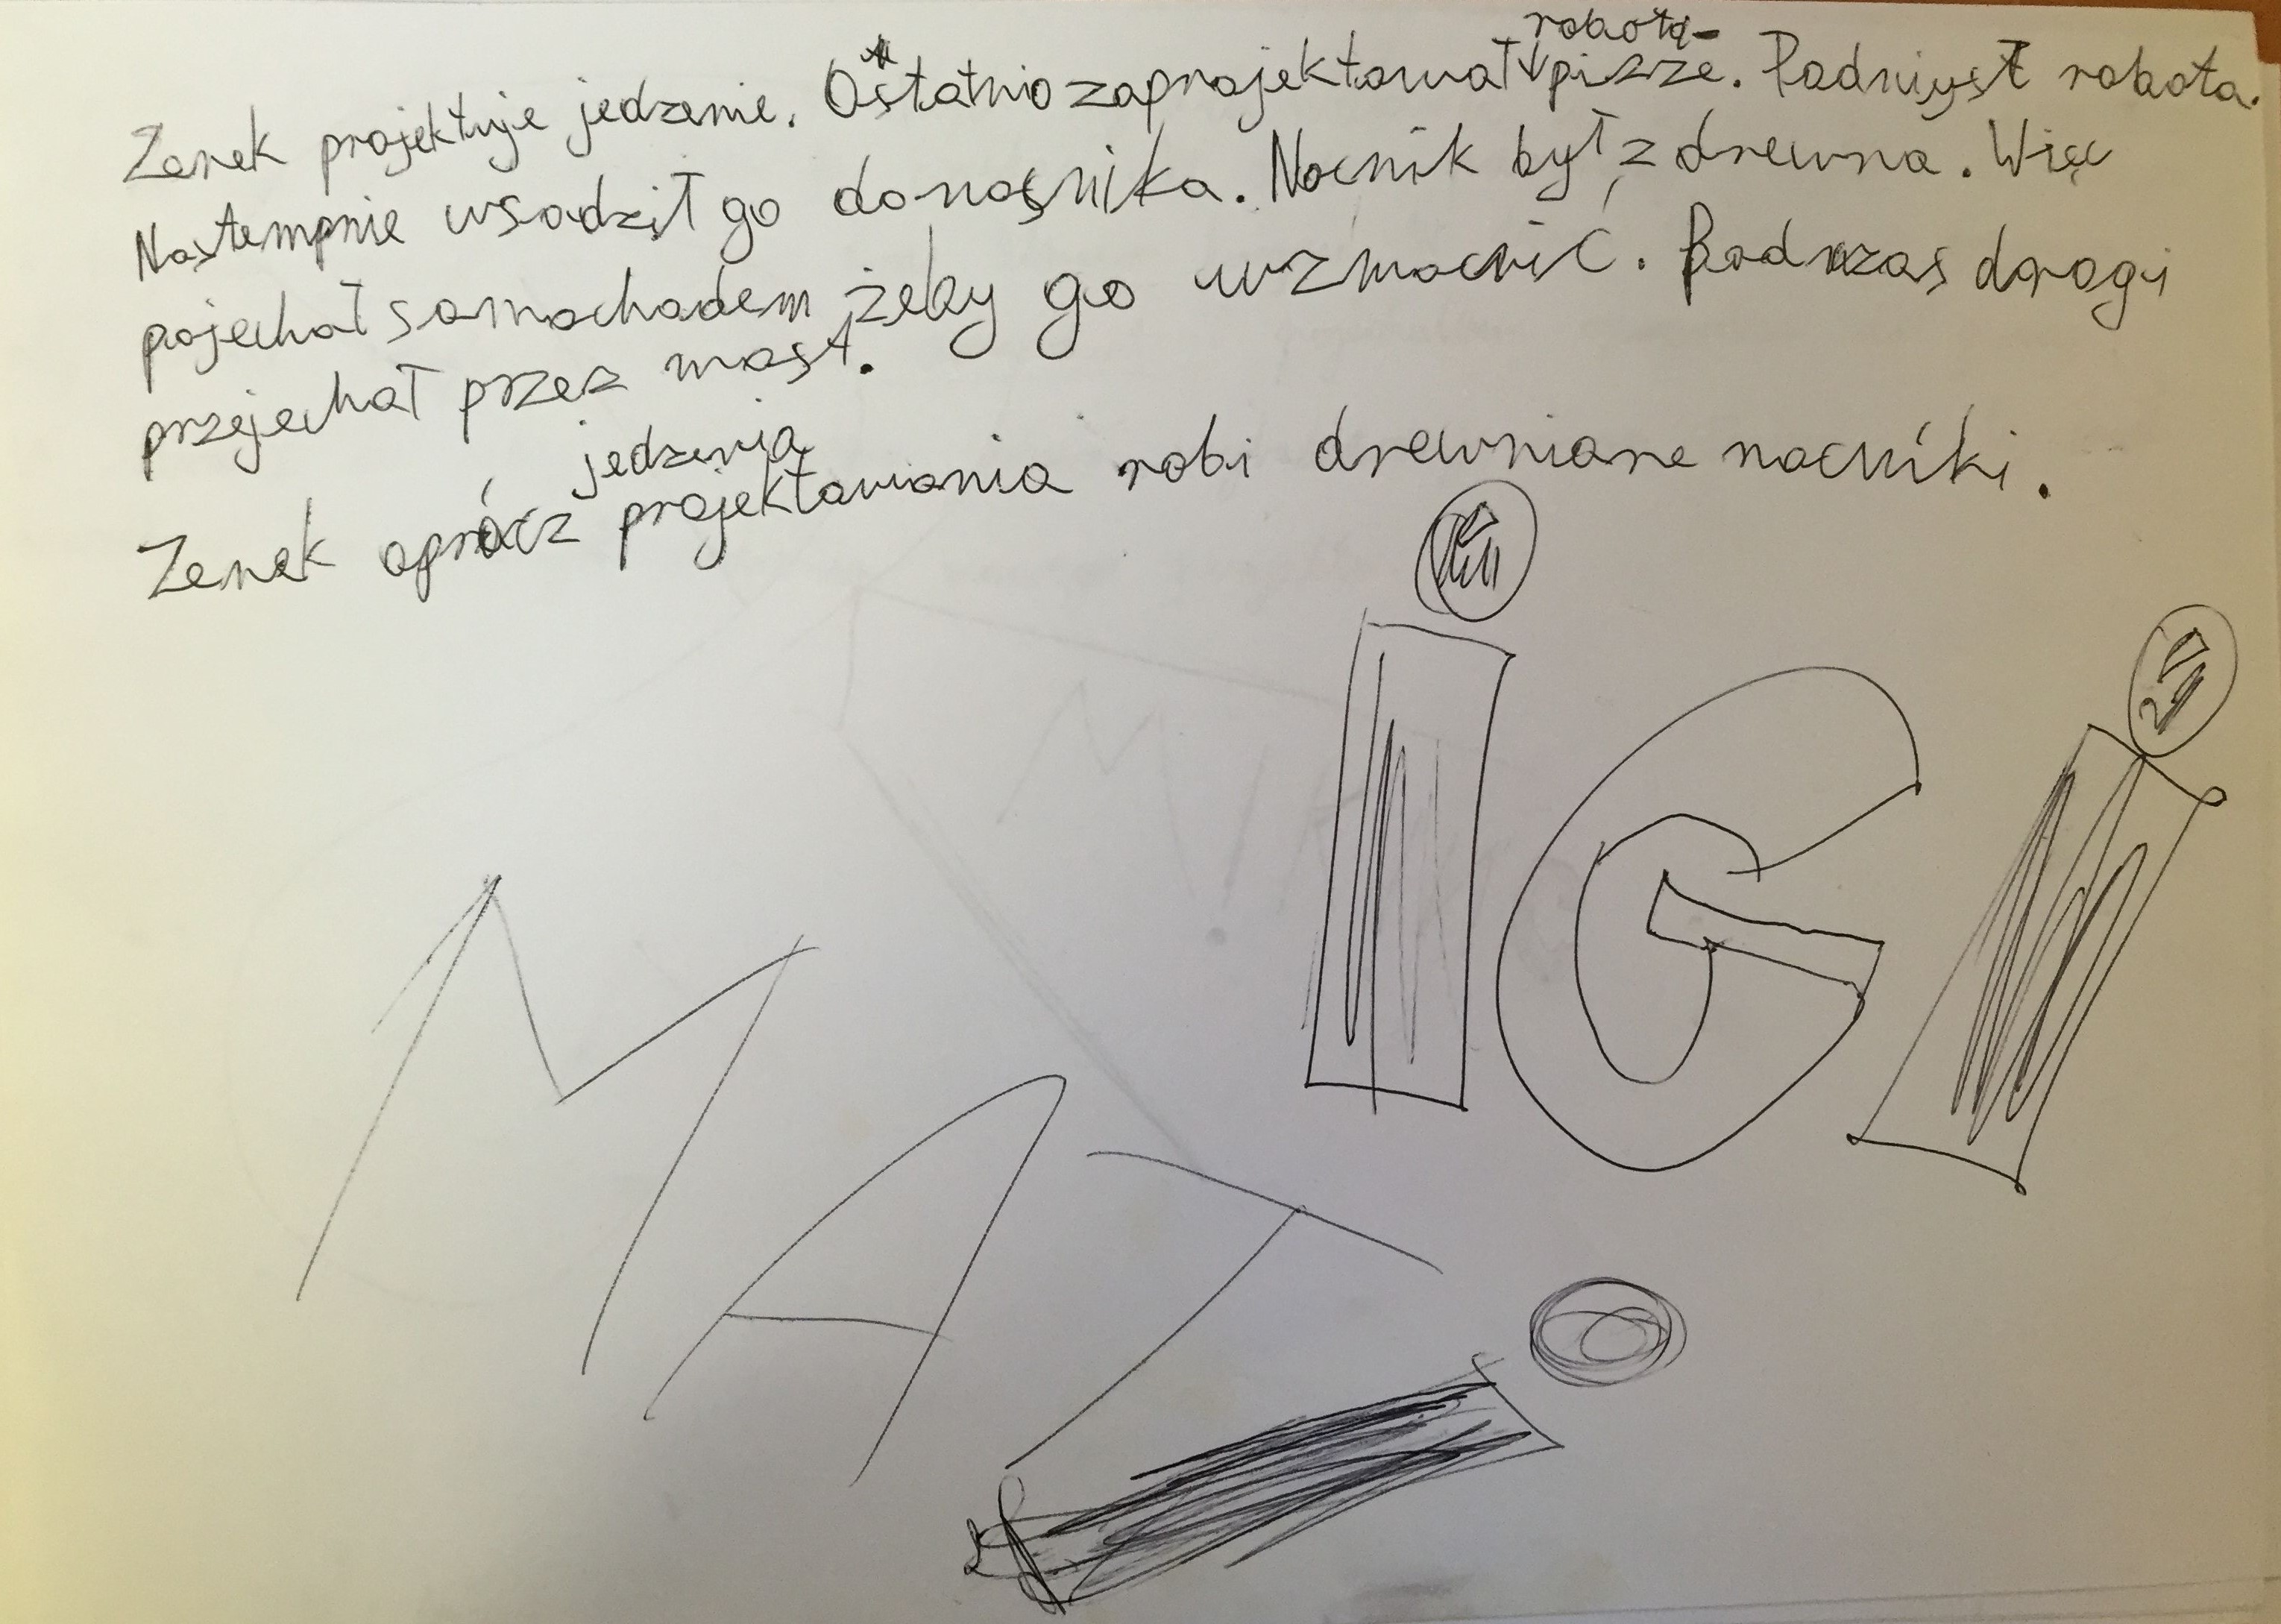 robota-
Zenek projektuje jedzenie. Ostatnio zaprojektował pizze. Podniysł robota.
Nastempnie wsadził go do nocnika. Nocnik był z drewna. Więc
pojechał samochodem żeby go wzmocnić. Podczas drogi
przejechał przez most.
jedzenia
Zenek oprócz projektowania robi drewniane nocniki.
iGi
MATi